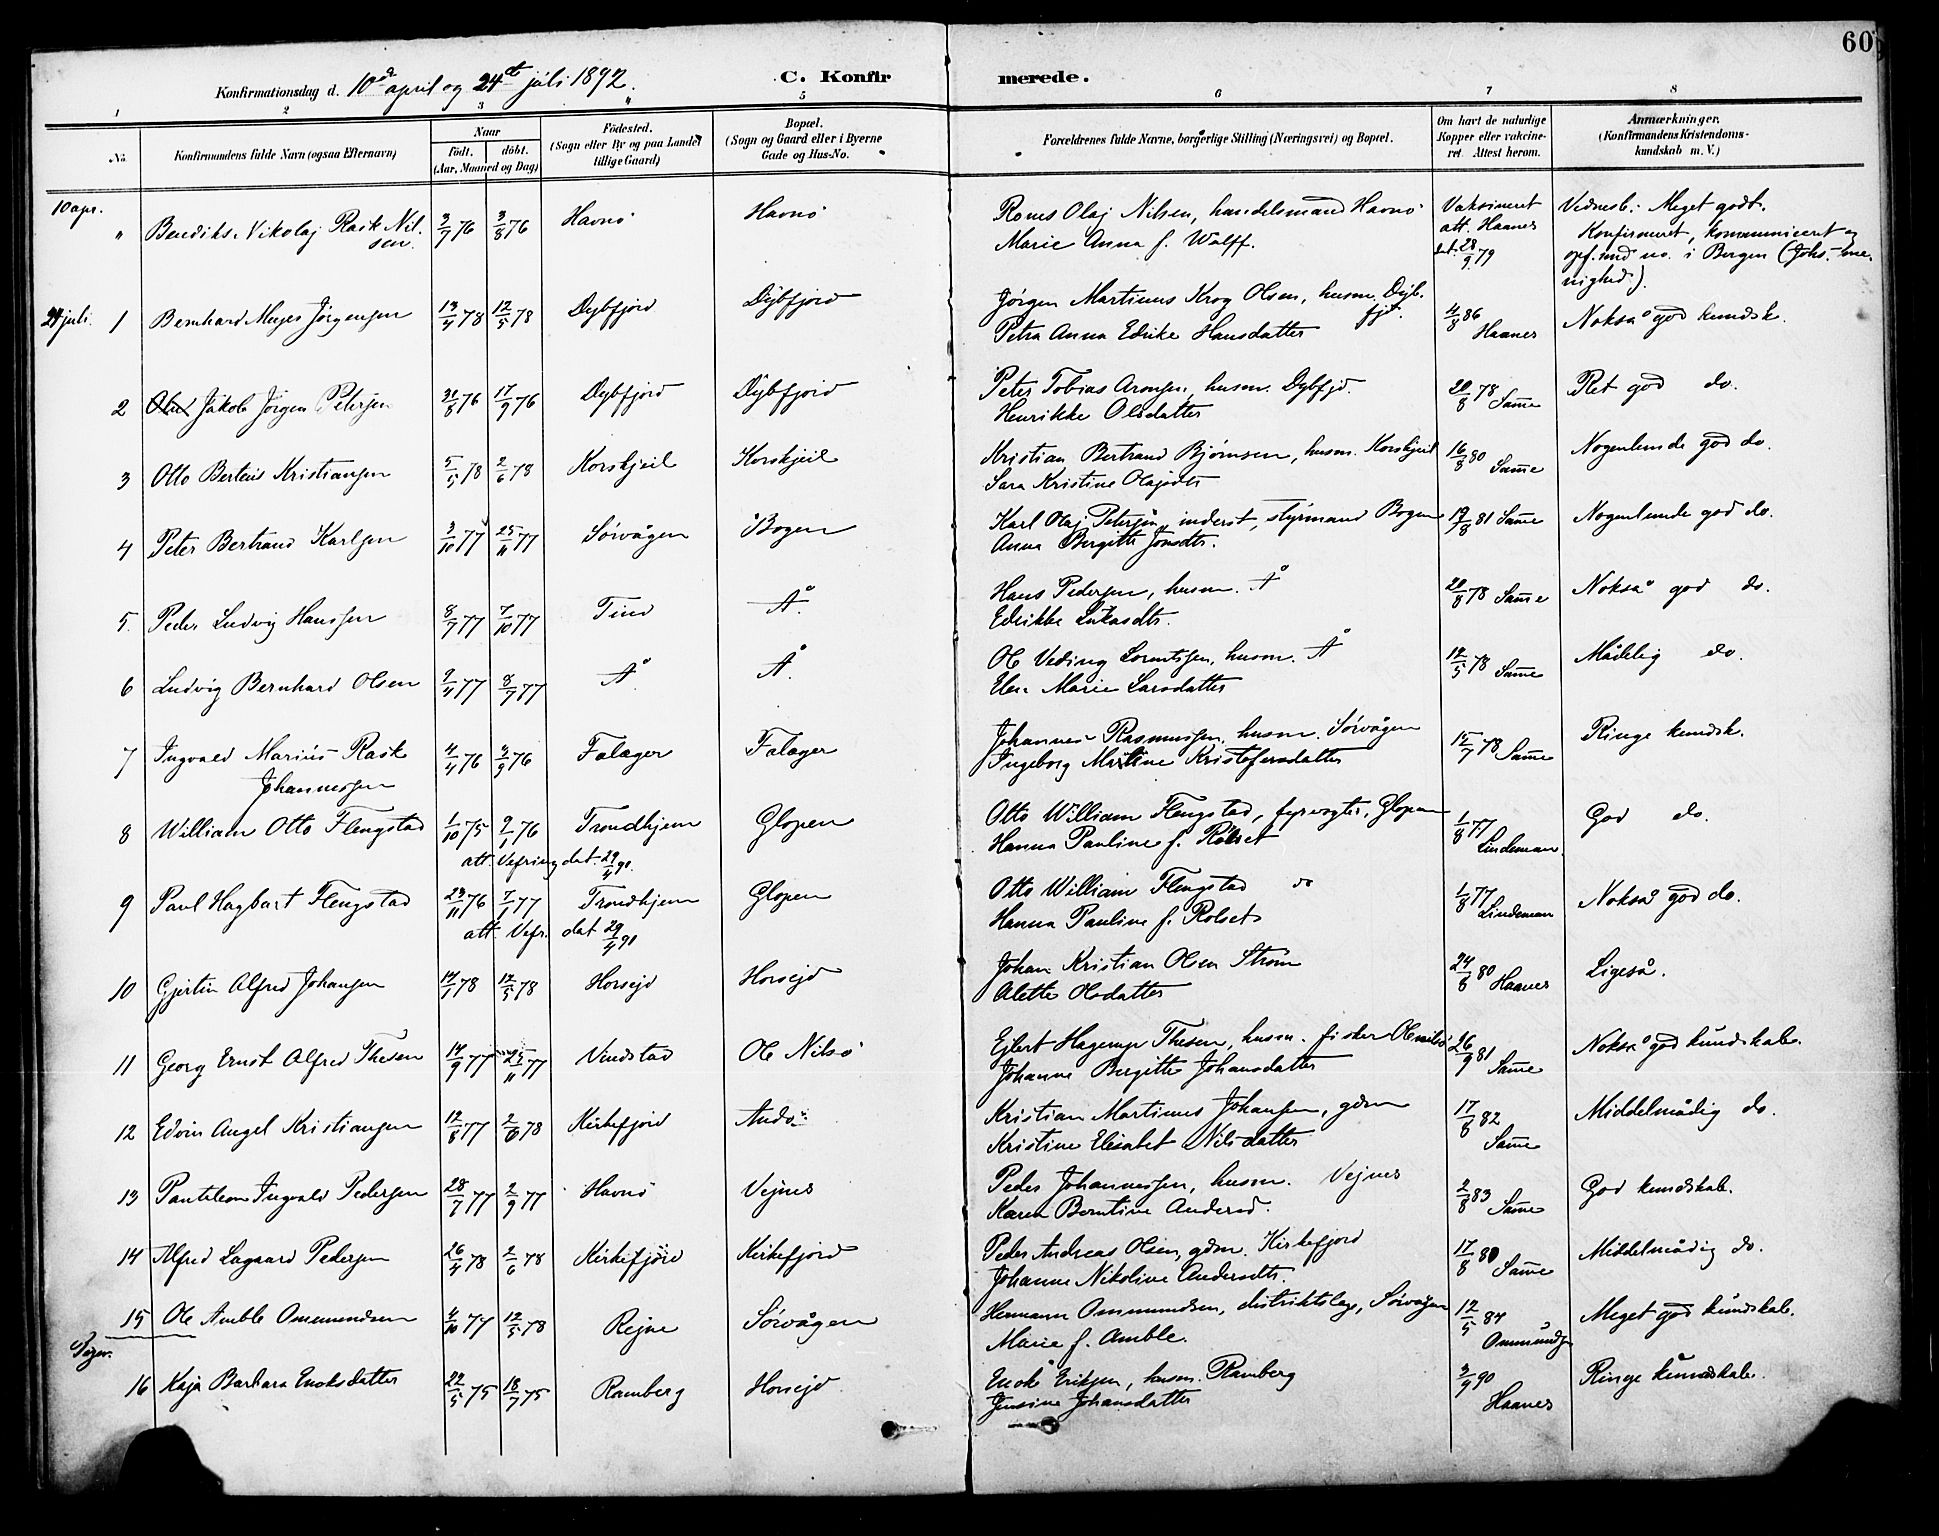 60
Konfirmationsdag d. 10de april og 24de juli 1892. C. Konfirmerede.
1 2 3 5 6 7 8
No. Konfirmandens fulde Navn (ogsaa Efternavn) Naar Födt. döbt. (Aar, Maaned og Dag) Födested. (Sogn eller By og paa Landet tillige Gaard) Bopæl. (Sogn og Gaard eller i Byerne Gade og Hus-No. Forældrenes fulde Navne, borgerlige Stilling (Næringsvei) og Bopæl. Om havt de naturlige Kopper eller vakcineret. Attest herom. Anmærkninger. (Konfirmandens Kristendomskundskab m. V.)
10 apr.
" Bendiks Nikolaj Rask Nilsen 3/7 76 3/8 76 Havnö Havnö Rones Olaj Nilsen, handelsmand Havnö Vaksineret Vidnesb.: Meget godt.
Marie Anna f. Wolff. att. Haanes Konfirmeret, kommuniceret og
dat. 28/9 79 i Bergen (Johs.-menighed).
24 juli. 1 Bernhard Meyer Jörgensen 13/4 78 12/5 78 Dybfjord Dybfjord Jörgen Martinus Krog Olsen, husm. Dybfjd. 4/8 86 Haanes Nokså god kundsk.
Petra Anna Edrike Hansdatter
2 Jakob Jörgen Petersen 31/8 76 17/9 76 Dybfjord Dybfjord Peter Tobias Aronsen, husm. Dybfjd. 20/8 78 Samme Ret god do.
Henrikke Olsdatter
3 Otto Berteus Kristiansen 5/5 78 2/6 78 Korskjeil Korskjeil Kristian Bertrand Björnsen, husm. Korskjeil 16/8 80 Samme Nogenlunde god do.
Sara Kristine Olajsdtr
4 Peter Bertrand Karlsen 3/10 77 25/11 77 Sörvågen Bogen Karl Olaj Petersen, inderst, styrmand Bogen 19/8 81 Samme Nogenlunde god do.
Anna Bergitte Jonsdtr.
5. Peder Ludvig Hanssen 8/7 77 7/10 77 Tind Å. Hans Pedersen, husm. Å 20/8 78 Samme Nokså god do.
Edrikke Lukasdtr.
6 Ludvig Bernhard Olsen 2/4 77 8/7 77 Å. Å. Ole Veding Lorentssen, husm. Å 12/5 78 Samme Mådelig do.
Elen Marie Larsdatter
7 Ingvald Marius Rask Johannessen 4/4 76 3/9 76 Falager Falager Johannes Rasmussen, husm. Sörvågen 15/7 78 Samme Ringe kundsk.
Ingeborg Martine Kristofersdatter
8 William Otto Flengstad 1/10 75 9/1 76 Trondhjem Glopen Otto William Flengstad, fyrvogter, Glopen 1/8 77 Lindeman God do.
att. Vefring dat. 29/4 90. Hanna Pauline f. Rolset
9 Paul Hagbart Flengstad 23/11 76 7/1 77 Trondhjem Glopen Otto William Flengstad do 1/8 77 Lindeman Nokså god do.
att. Vefr. dat 29/4 90 Hanna Pauline f. Rolset
10 Gjertin Alfred Johansen 14/1 78 12/5 78 Horsejd Horsejd Johan Kristian Olsen Ström 24/8 80 Haanes Ligeså.
Alette Olsdatter
11 Georg Ernst Alfred Thesen 14/9 77 25/11 77 Vindstad Ole Nilsö Ejlert Hagerup Thesen, husm. fisker Olenilsö 26/9 81 Samme Nokså god kundskab.
Johanne Bergitte Johansdatter
12 Edvin Angel Kristiansen 12/8 77 2/6 78 Kirkefjord Andö Kristian Martinus Johansen, gdm 17/8 82 Samme Middelmådig do.
Kristine Elisabet Nilsdatter
13 Panteleon Ingvald Pedersen 28/7 77 2/9 77 Havnö Vejnes Peder Johannessen, husm. Vejnes 2/8 83 Samme God kundskab.
Karen Berntine Andersd.
14 Alfred Lagaard Pedersen 26/4 78 2/6 78 Kirkefjord Kirkefjord Peder Andreas Olsen, gdm. Kirkefjord 17/8 80 Samme Middelmådig do.
Johanne Nikoline Andersdtr.
15 Ole Amble Ommundsen 4/10 77 12/5 78 Rejne Sörvågen Hemann Ommundsen, distriktslæge, Sörvågen 12/5 84 Ommundsen Meget god kundskab.
Marie f. Amble.
Piger.
16 Kaja Barbara Enoksdatter 22/5 75 18/7 75 Ramberg Horsejd Enok Eriksen, husm. Ramberg 3/9 90 Haanes Ringe kundskab.
Jensine Johansdatter